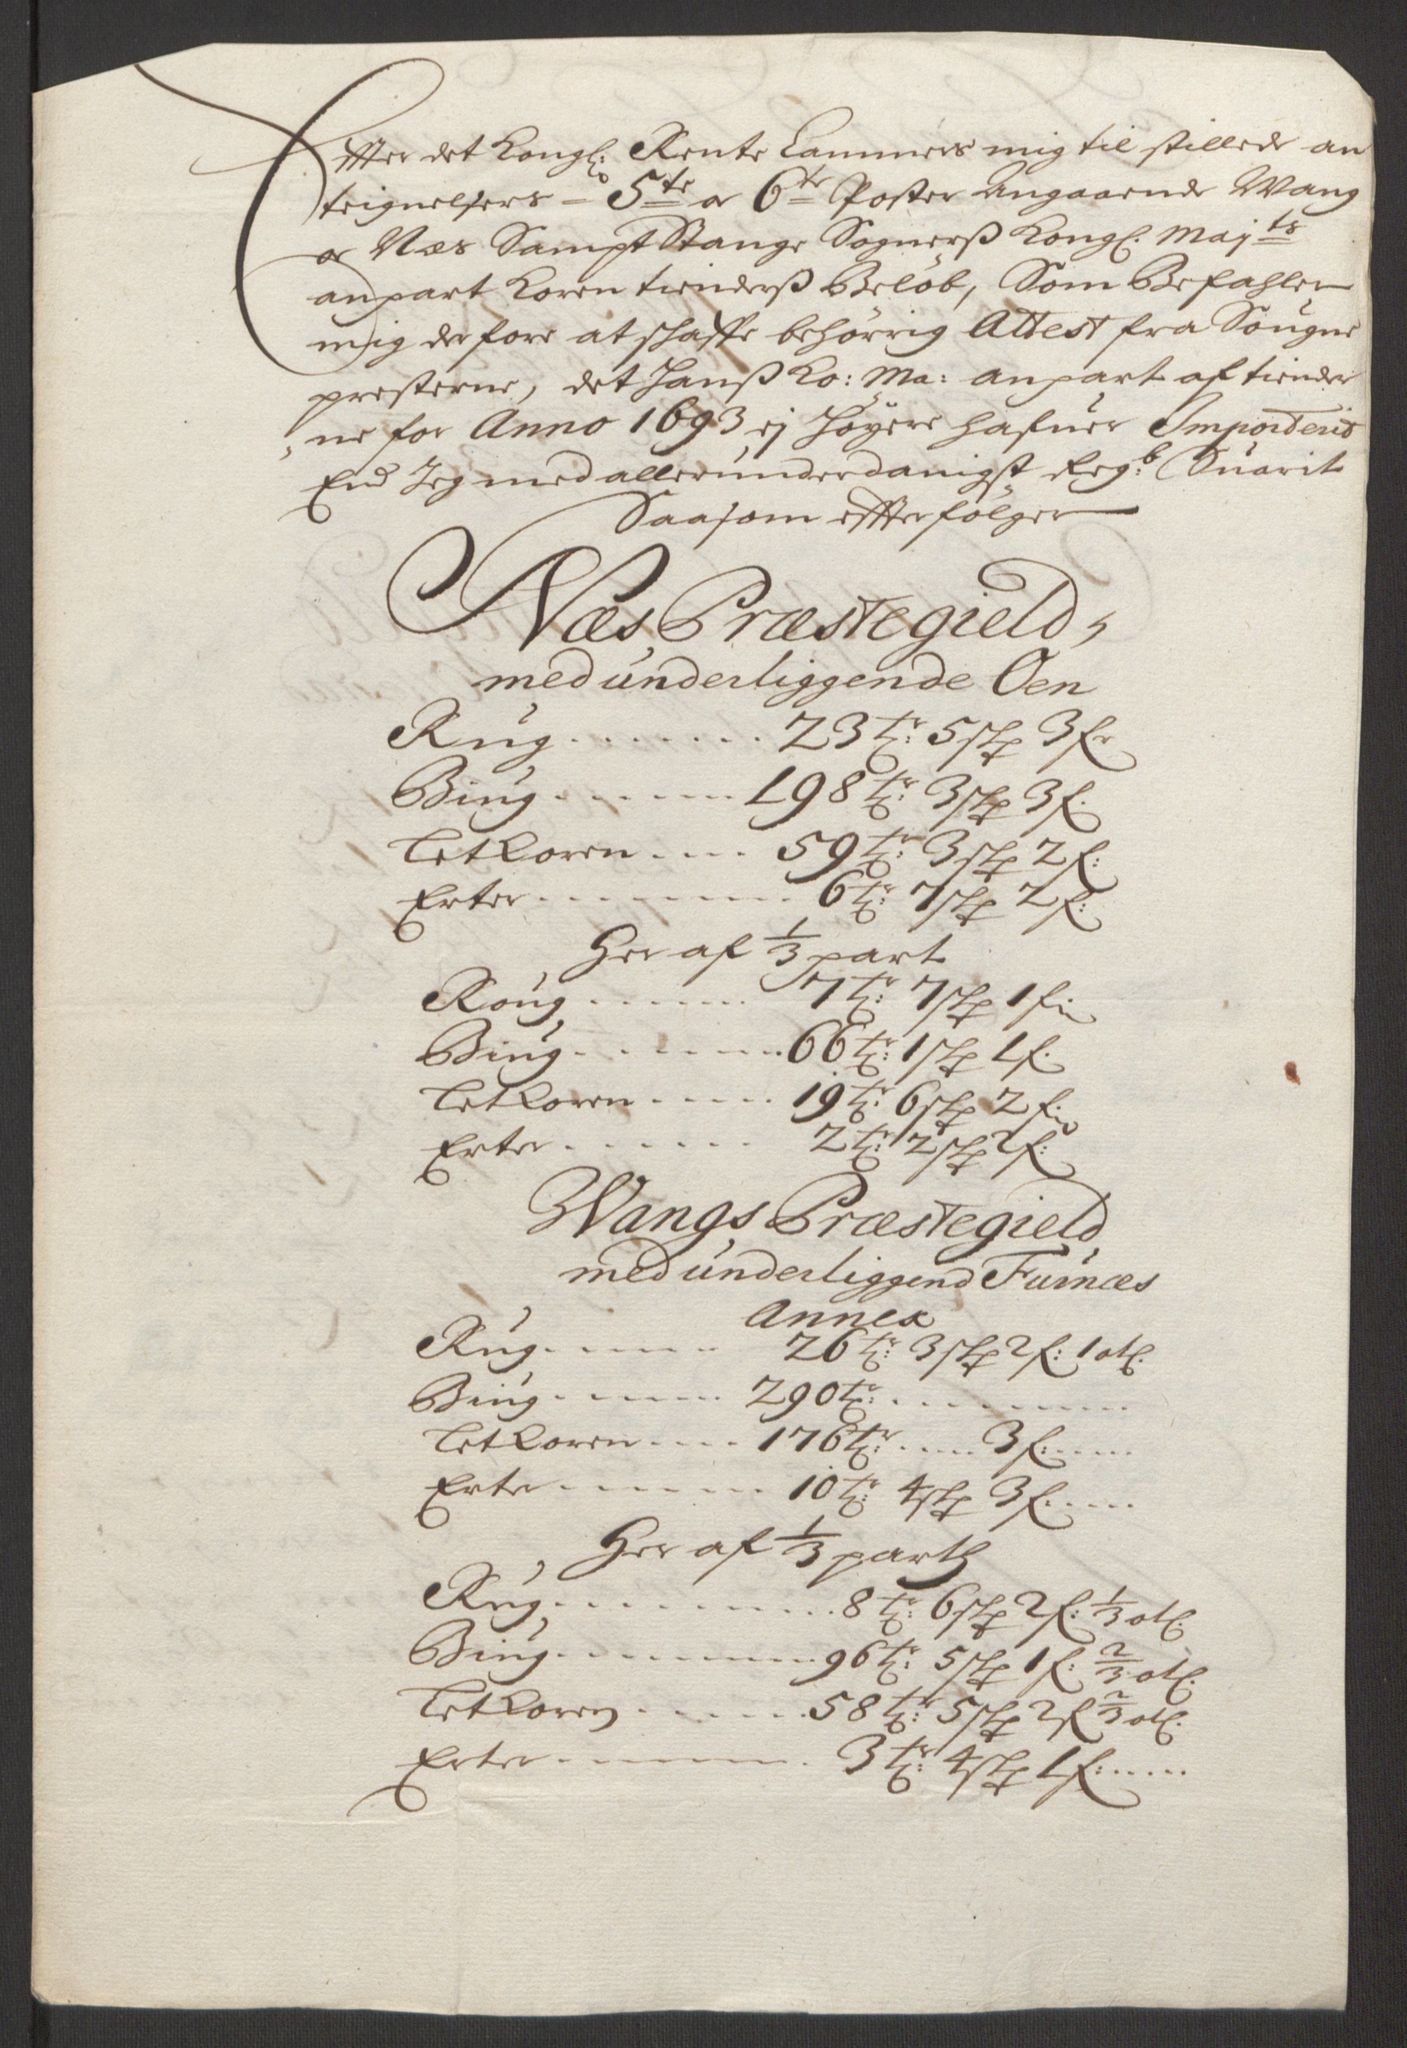 Effter det Kongl: Rente Cammers mig til stillede an
teignelsers 5te oc 6te Poster Angaaende Wang
oc Næs Sampt Stange Sognerß Kongl. Mayts
anpart Koren tienderß Beløb, Som Befahler
mig derfore at schaffe behørrig Attest fra Sougne
presterne, det Hanß Ko: Ma: anpart af tiender
ne for Anno 1693 ej høyere hafuer Importerit
End Jeg med allerunderdanigst Regb: Suarit
Saasom effterfølger
Næs Præstegield,
med underliggende Øen
Rug ....... 23 tr: 5 skp 3 fr
Biug ...... 198 tr: 3 skp 3 f.
Letkoren .... 59 tr: 3 skp 2 f:
Erter ....... 6 tr: 7 skp 2 f:
Her af 1/3 part
Roug ...... 7 tr: 7 skp 1 f:
Biug ...... 66 tr: 1 skp 1 f.
Letkoren ..... 19 tr: 6 skp 2 f:
Erter ...... 2 tr: 2 skp 2 f:
Wangs Præstegield
med underliggend Furnæs
Annex
Rug ..... 26 tr: 3 skp 2 f: 1 otl.
Biug ...... 290 tr: .......
Letkoren .... 176 tr: .... 3 f: ....
Erter ...... 10 tr: 4 skp 3 f. ....
Her af 1/3 parth
Rug ........ 8 tr: 6 skp 2 f: 1/3 otl.
Biug ........ 96 tr: 5 skp 1 f: 2/3 otl.
Letkoren ...... 58 tr: 5 skp 2 f 2/3 otl.
Erter ....... 3 tr: 4 skp 1 f: ....